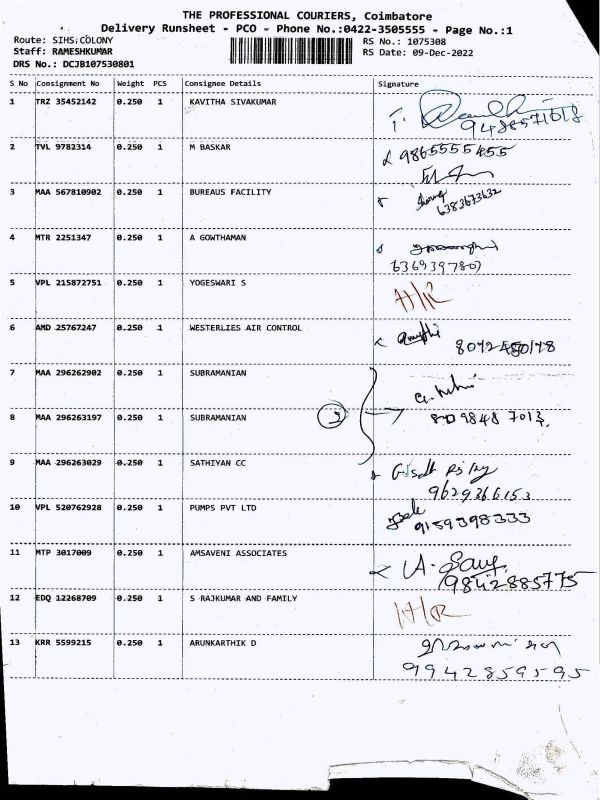 THE PROFESSIONAL COURIERS, Coimbatore
Delivery Runsheet - PCO - Phone No.:0422-3505555 - Page No.:1
Route: SIHS COLONY
RS No.: 1075308
Staff: RAMESHKUMAR
RS Date: 09-Dec-2022
DRS No.: DCJB107530801
S No Consignment No Weight PCS Consignee Details Signature
1 TRZ 35452142 0.250 1 KAVITHA SIVAKUMAR
9488571618
2 TVL 9782314 0.250 1 M BASKAR
9865555455
3 MAA 567810902 0.250 1 BUREAUS FACILITY
6383673632
4 MTR 2251347 0.250 1 A GOWTHAMAN
6369397807
5 VPL 215872751 0.250 1 YOGESWARI S
H/R
6 AMD 25767247 0.250 1 WESTERLIES AIR CONTROL
7 MAA 296262902 0.250 1 SUBRAMANIAN
8 MAA 296263197 0.250 1 SUBRAMANIAN
9 MAA 296263029 0.250 1 SATHIYAN CC
9629366153
10 VPL 520762928 0.250 1 PUMPS PVT LTD
9159398333
11 MTP 3017009 0.250 1 AMSAVENI ASSOCIATES
9842885775
12 EDQ 12268709 0.250 1 S RAJKUMAR AND FAMILY
H/R
13 KRR 5599215 0.250 1 ARUNKARTHIK D
9942859595